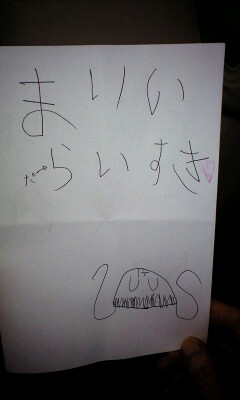 まりい
だ→らいすき♡